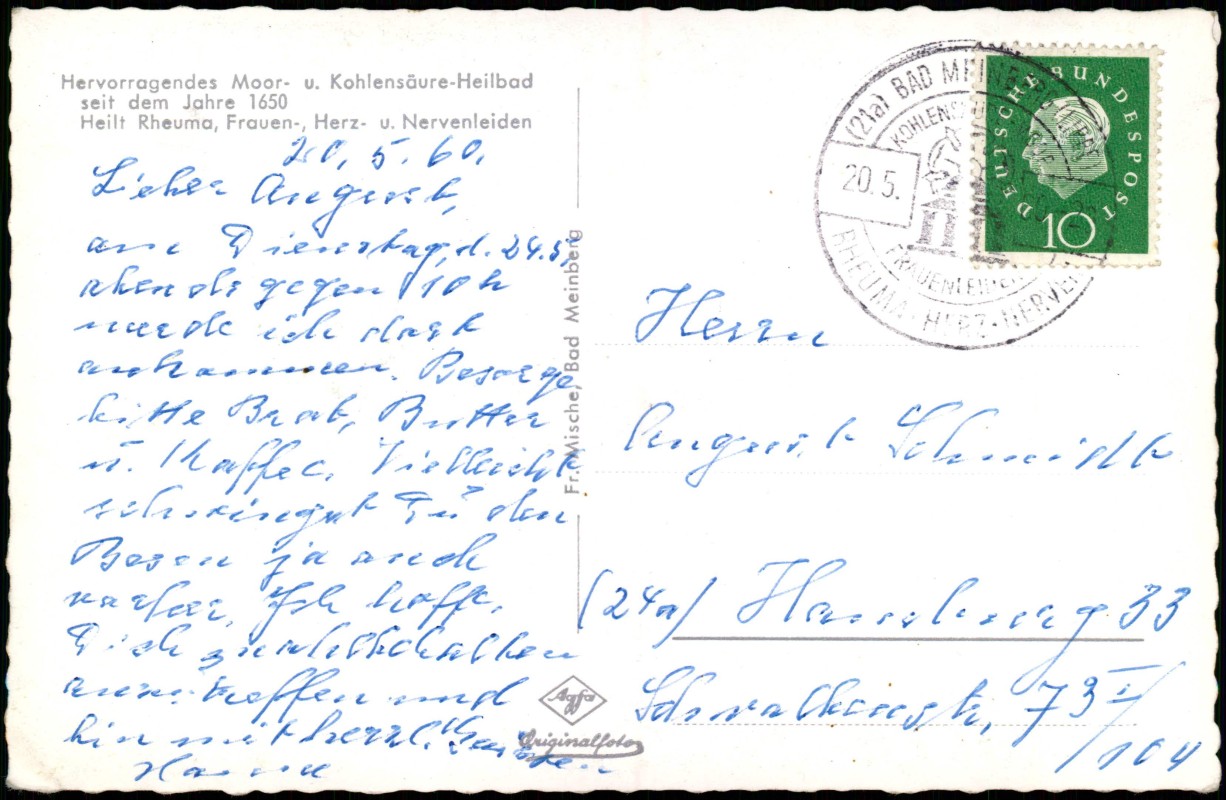 Hervorragendes Moor- u. Kohlensäure-Heilbad
seit dem Jahre 1650
Heilt Rheuma, Frauen-, Herz- u. Nervenleiden
20. 5. 60.
Lieber August,
am Dienstag, d. 24.5.
abends gegen 10 h
werde ich dort
ankommen. Besorge
bitte Brot, Butter
u. Kaffee. Vielleicht
schwingst Du den
Besen ja auch
vorher. Ich hoffe,
Dich wohlbehalten
anzutreffen und
bin mit herzl. Grüßen
Hanna
Fr. Mische, Bad Meinberg
Agfa
Originalfoto
(21a) BAD MEINBERG
KOHLENSÄU
20.5.
FRAUENLEIDE
RHEUMA · HERZ · NERVE
DEUTSCHE BUNDESPOST
10
Herrn
August Schmidt
(24a) Hamburg 33
73 I/
104